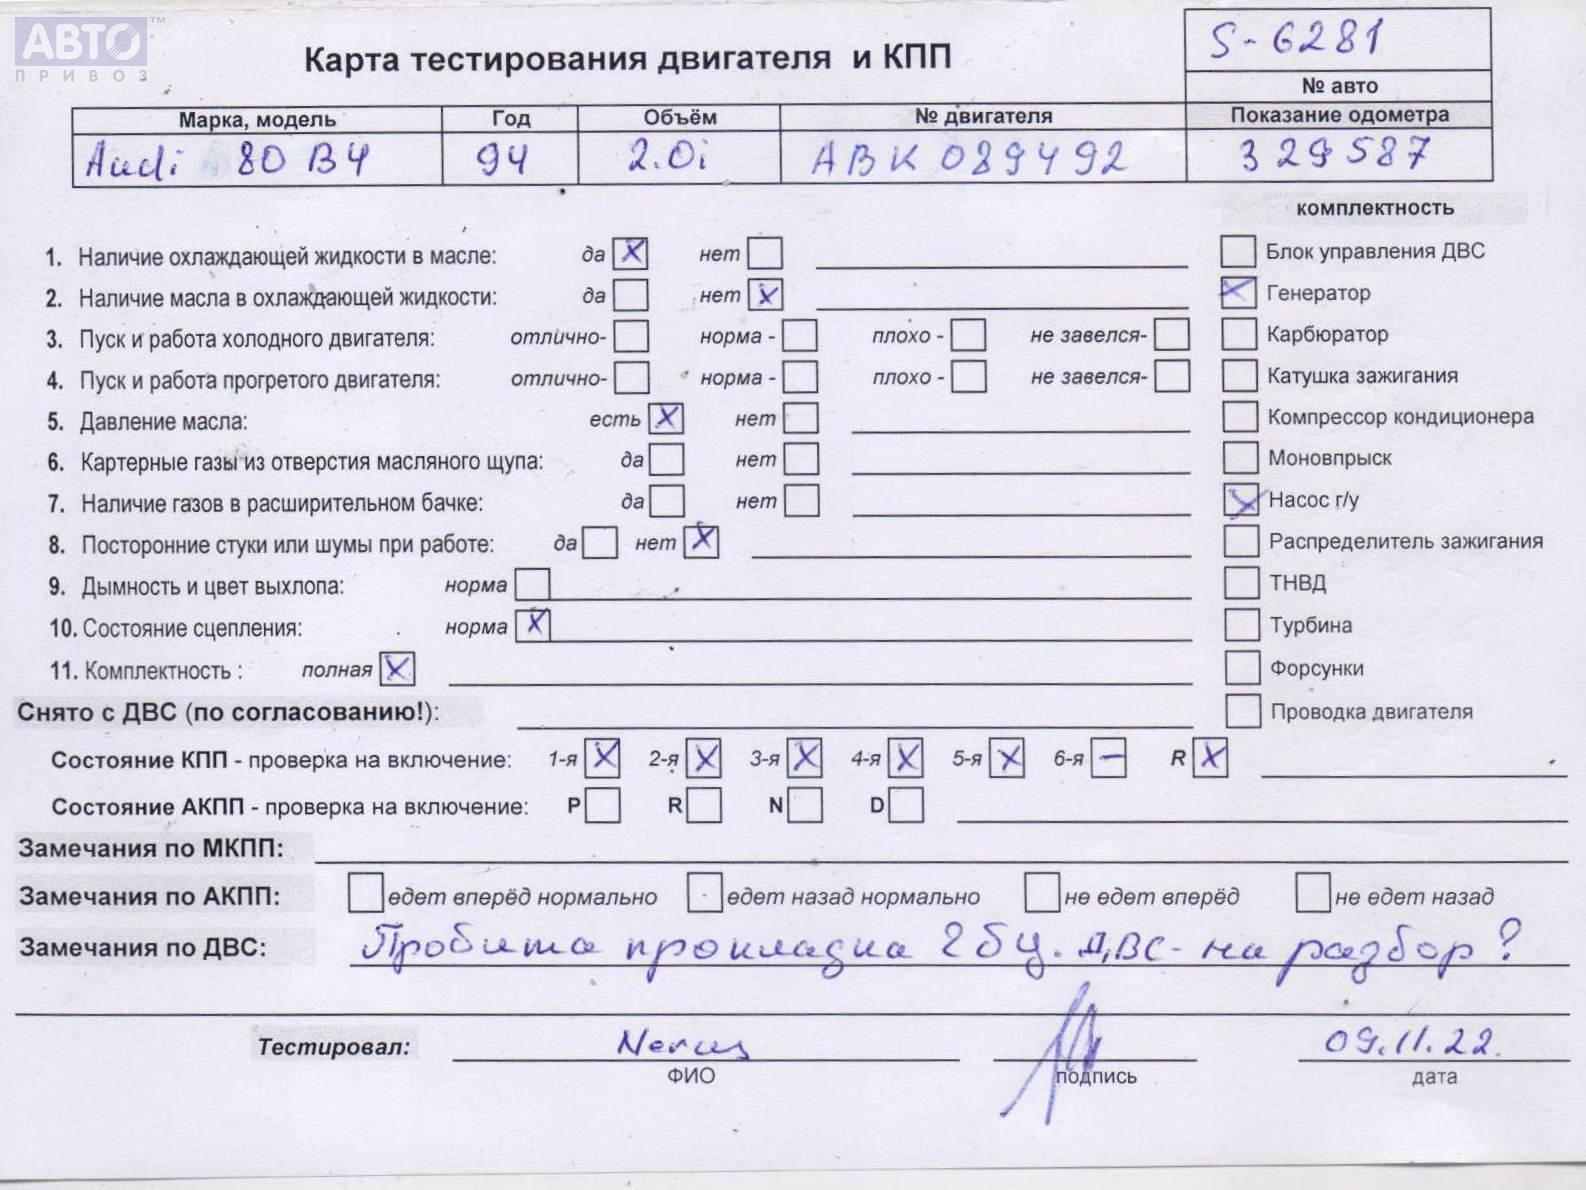 АВТО ™
ПРИВОЗ
S-6281
Карта тестирования двигателя и КПП
№ авто
Марка, модель Год Объём № двигателя Показание одометра
Audi 80 B4 94 2.0i ABK 089492 329587
комплектность
1. Наличие охлаждающей жидкости в масле: да X нет Блок управления ДВС
2. Наличие масла в охлаждающей жидкости: да нет X X Генератор
3. Пуск и работа холодного двигателя: отлично- норма - плохо - не завелся- Карбюратор
4. Пуск и работа прогретого двигателя: отлично- норма - плохо - не завелся- Катушка зажигания
5. Давление масла: есть X нет Компрессор кондиционера
6. Картерные газы из отверстия масляного щупа: да нет Моновпрыск
7. Наличие газов в расширительном бачке: да нет X Насос г/у
8. Посторонние стуки или шумы при работе: да нет X Распределитель зажигания
9. Дымность и цвет выхлопа: норма ТНВД
10. Состояние сцепления: норма X Турбина
11. Комплектность : полная X Форсунки
Снято с ДВС (по согласованию!): Проводка двигателя
Состояние КПП - проверка на включение: 1-я X 2-я X 3-я X 4-я X 5-я X 6-я – R X
Состояние АКПП - проверка на включение: P R N D
Замечания по МКПП:
Замечания по АКПП: едет вперёд нормально едет назад нормально не едет вперёд не едет назад
Замечания по ДВС: Пробита прокладка гбц. ДВС - на разбор?
Тестировал: 09.11.22.
ФИО подпись дата